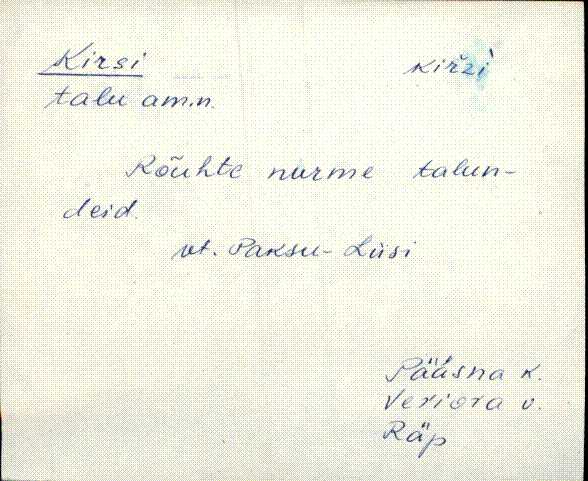 Kirsi kiržì
talu am.n.
Kõuhte nurme talun-
deid.
vt. Paksu-Liisi
Pääsna k.
Veriora v.
Räp